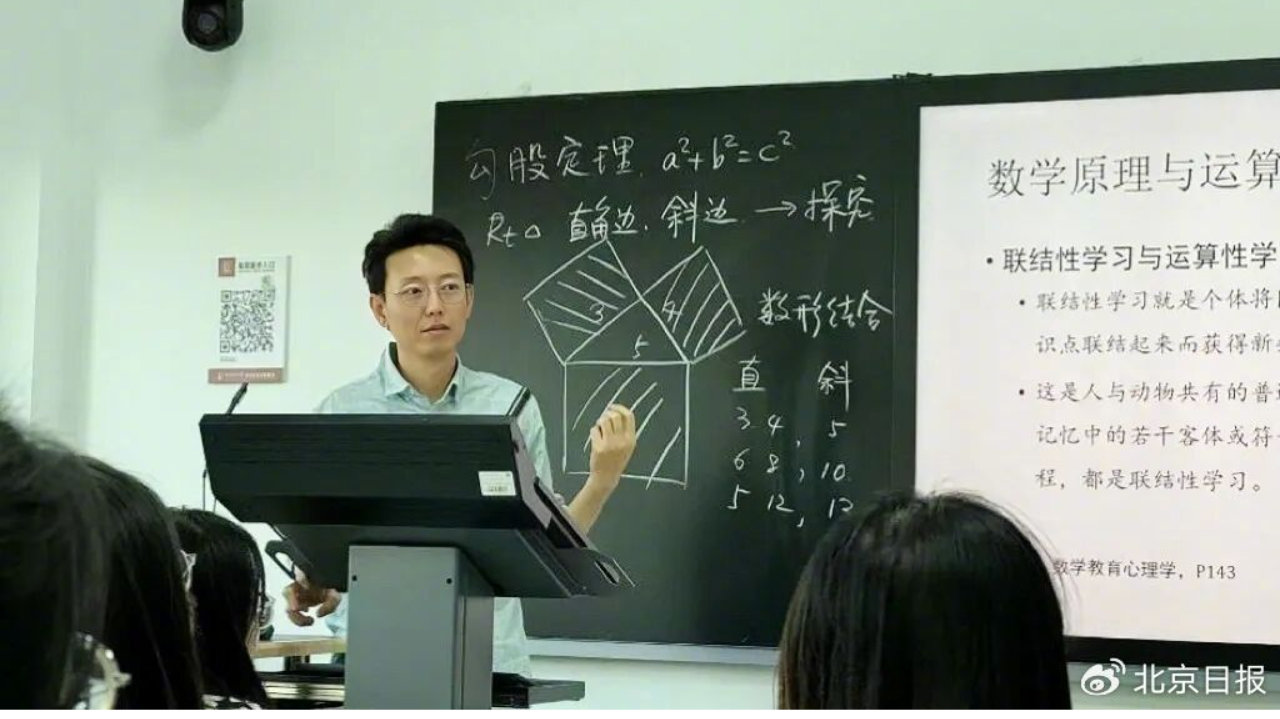 勾股定理. a²+b²=c²
Rt△ 直角边. 斜边 → 探究
3
4
5
数形结合
直 斜
3 4, 5
6 8, 10
5 12, 13
数学原理与运算
• 联结性学习与运算性学
• 联结性学习就是个体将
识点联结起来而获得新
• 这是人与动物共有的普
记忆中的若干客体或符
程，都是联结性学习。
数学教育心理学，P143
北京日报